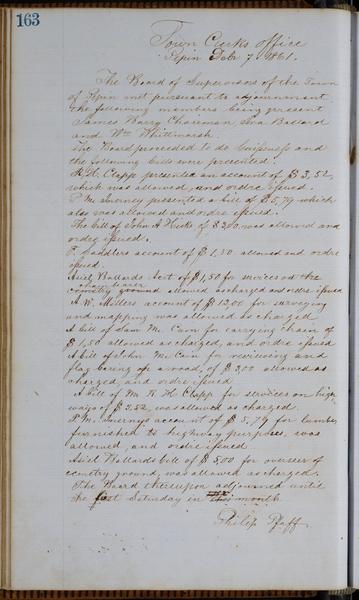 163
Town Clerks office
Pepin Feb 7. 1861.
The Board of Supervisors of the Town
of Pepin met pursuant to adjournment
the following members being present
James Barry Chairman Ira Ballard
and Wm Whitmarsh.
The Board proceeded to do buissness and
the following bills were precented.
H. H. Clapp presented an account of $3,52,
which was allowed, and ordre issued.
P. M. presented a bill of $5,79 which
also was allowed and ordre issued.
The bill of John A of $ was allowed and
ordre issued.
Handlers account of $1,50 allowed and ordre
issued
Asiel Ballards Act of $1,50 for services on the
cemetry ground allowed as charged and ordre issued
A. W. Millers account of $12,00 for surveying
and mapping was allowed as charged
A bill of Sam Mc Cain for carrying chain of
$1,50 allowed as charged, and ordre issued
A bill of John Mc Cain for reviewing and
flag of a road, of $3,00 allowed as
charged, and ordre issued
A bill of Mr H. H. Clapp for services on high
ways of $3.52, was allowed as charged.
P. M. account of $5,79 for lumber
furnished to highway purposes, was
allowed, and ordre issued
Asiel Ballards bill of $5,00 for overseer of
cemetry ground, was allowed as charged.
The Board thereupon adjourned until
the Saturday in month
Philip Pfaff